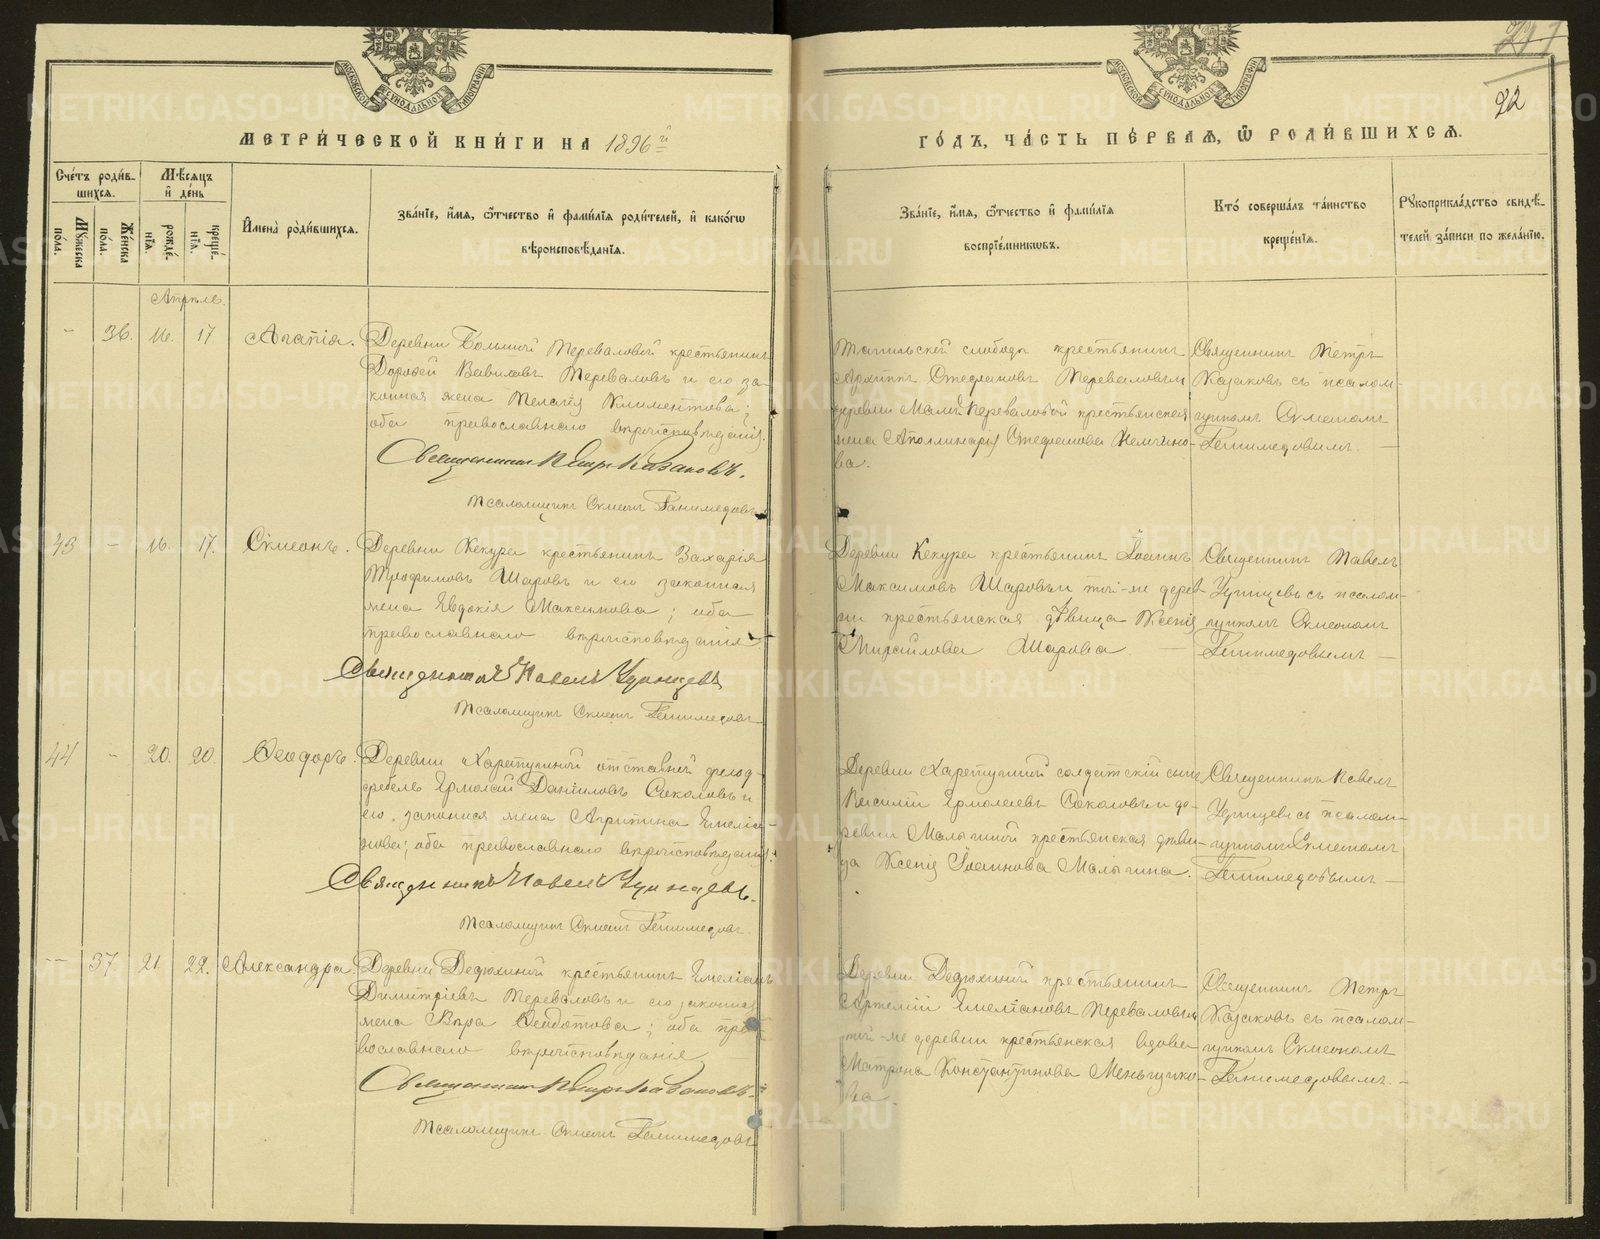 МОСКОВСКОЙ СѴНОДАЛЬНОЙ ТИПОГРАФІИ
МОСКОВСКОЙ СѴНОДАЛЬНОЙ ТИПОГРАФІИ
92
МЕТРИ́ЧЕСКОЙ КНИ́ГИ НА 1896й
ГО́ДЪ, ЧА́СТЬ ПЕ́РВАѦ, Ѿ РОДИ́ВШИХСѦ.
Сче́тъ роди́в-
шихсѧ.
Мужеска по́ла.
Же́нска по́ла.
Мѣ́сѧцъ и де́нь
рожде́-
нїѧ.
креще́-
нїѧ.
Имена̀ роди́вшихсѧ.
Зва́нїе, и́мѧ, ѻ́тчество и фами́лїѧ роди́телей, и како́гѡ
вѣроисповѣ́данїѧ.
Зва́нїе, и́мѧ, ѻ́тчество и фами́лїѧ
воспрїе́мникѡвъ.
Кто̀ соверша́лъ та́инство
креще́нїѧ.
Рукоприкла́дство свидѣ́-
телей за́писи по жела́нїю.
Апрѣль.
-
36.
16.
17.
Агапія.
Деревни Большой Переваловой крестьянинъ
Дорофей Вавиловъ Переваловъ и его за-
конная жена Пелагія Климентова;
оба православнаго вѣроисповѣданія.
Священникъ Петръ Казаковъ.
Псаломщикъ Симеонъ Ганимедовъ
слободы крестьянинъ
Архиппъ Стефановъ Переваловъ и
деревни Малой Переваловой крестьянская
жена Аполлинарія Стефанова Немчино-
ва.
Священникъ Петръ
Казаковъ съ псалом-
щикомъ Симеономъ
Ганимедовымъ.
43
-
16.
17.
Симеонъ.
Деревни Кекура крестьянинъ Захарія
Трофимовъ Шаровъ и его законная
жена Евдокія Максимова; оба
православнаго вѣроисповѣданія.
Священникъ Павелъ Удинцевъ
Псаломщикъ Симеонъ Ганимедовъ
Деревни Кекура крестьянинъ Іоаннъ
Максимовъ Шаровъ и той-же дерев-
ни крестьянская дѣвица Ксенія
Михайлова Шарова.
Священникъ Павелъ
Удинцевъ съ псалом-
щикомъ Симеономъ
Ганимедовымъ
44
-
20.
20.
Ѳеодоръ.
Деревни Харетушиной отставной фельд-
фебель Ермолай Даніиловъ Соколовъ и
его законная жена Агрипина Емеліа-
нова; оба православнаго вѣроисповѣданія.
Священникъ Павелъ Удинцевъ.
Псаломщикъ Симеонъ Ганимедовъ.
Деревни Харетушиной солдатскій сынъ
Василій Ермолаевъ Соколовъ и де-
ревни Малыгиной крестьянская дѣви-
ца Ксенія Іоаннова Малыгина.
Священникъ Павелъ
Удинцевъ съ псалом-
щикомъ Симеономъ
Ганимедовымъ
--
37
21
22.
Александра.
Деревни Дедюхиной крестьянинъ Емеліанъ
Димитріевъ Переваловъ и его законная
жена Вѣра Ѳеодотова; оба пра-
вославнаго вѣроисповѣданія
Священникъ Петръ Казаковъ.
Псаломщикъ Симеонъ Ганимедовъ
Деревни Дедюхиной крестьянинъ
Артемій Емеліановъ Переваловъ и
той-же деревни крестьянская вдова
Матрона Константинова Меньщико-
ва.
Священникъ Петръ
Казаковъ съ псалом-
щикомъ Симеономъ
Ганимедовымъ.
METRIKI.GASO-URAL.RU